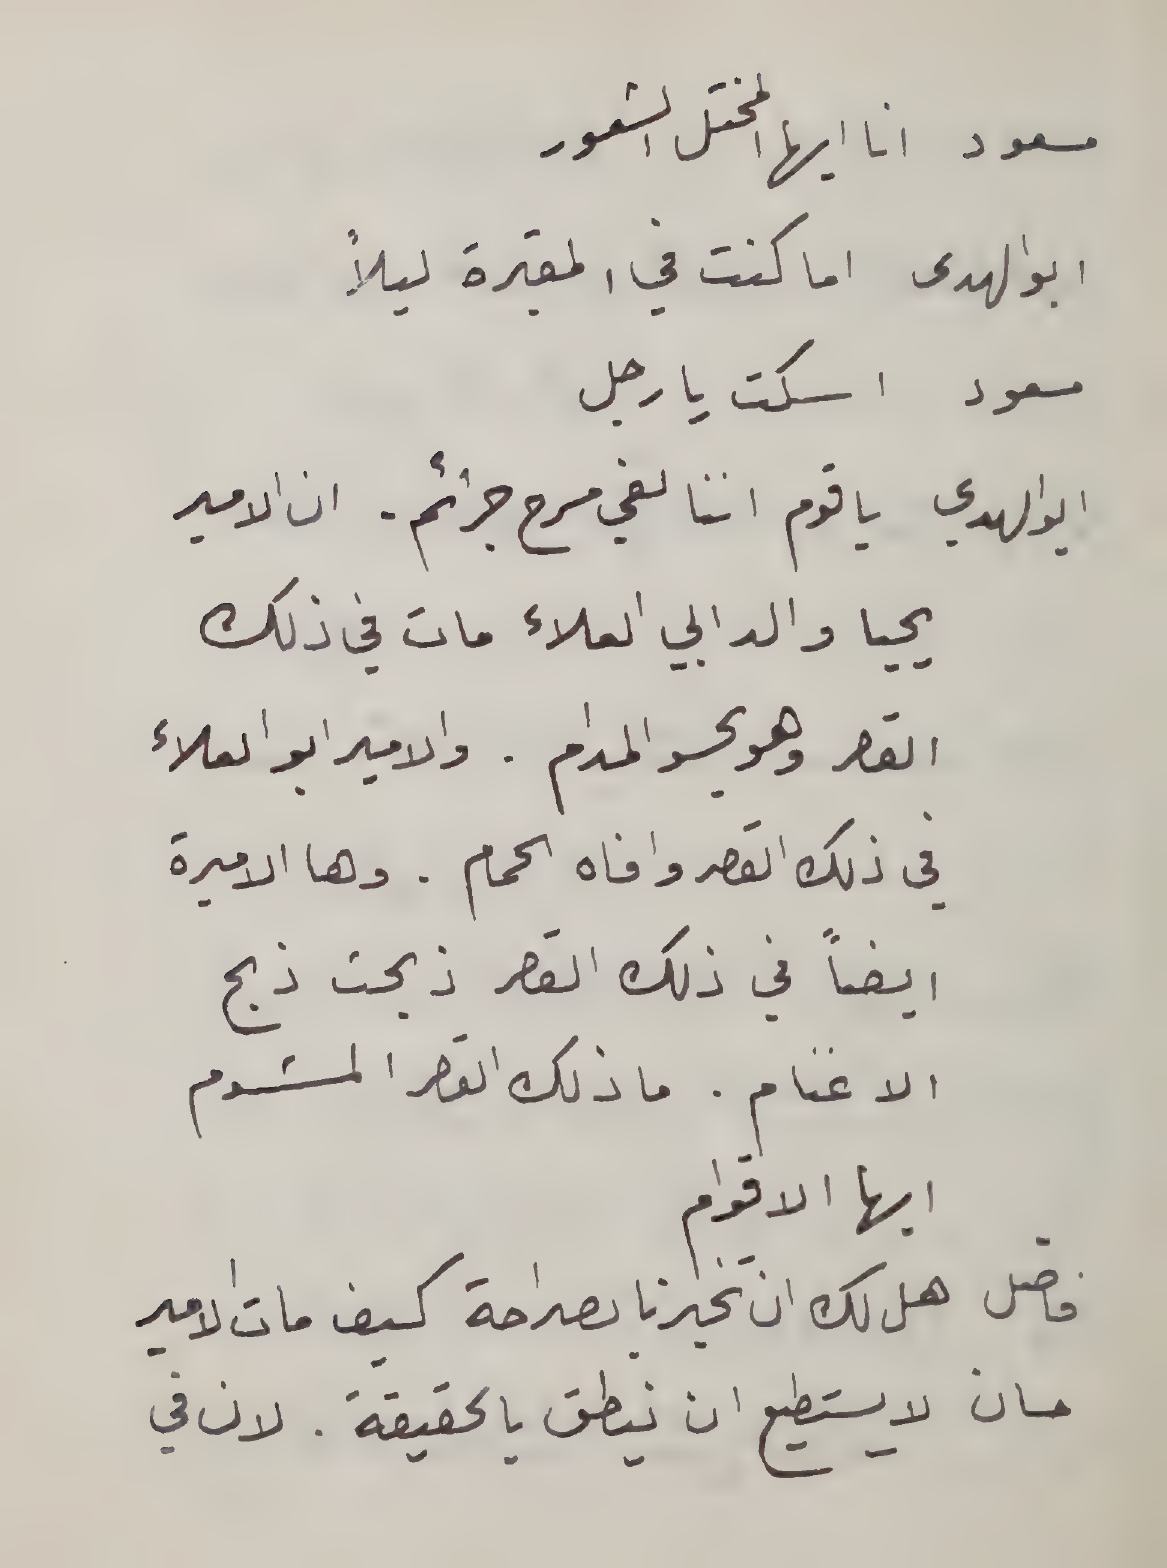 مسعود انا ايها المختل الشعور
ابو الهدى اما كنت في المقبرة ليلاً
مسعود اسكت يا رجل
ابو الهدي يا قوم اننا لفي مسرح جرائم. ان الامير
يحيا والد ابي العلاء مات في ذلك
القصر وهو يحسو المدام. والامير ابو العلاء
في ذلك القصر وافاه الحمام. وها الاميرة
ايضاً في ذلك القصر ذبحت ذبح
الاغنام. ما ذلك القصر المشوم
ايها الاقوام
فاضل هل لك ان تخبرنا بصراحة كيف مات الامير
حسان لا يستطيع ان ينطق بالحقيقة. لان في